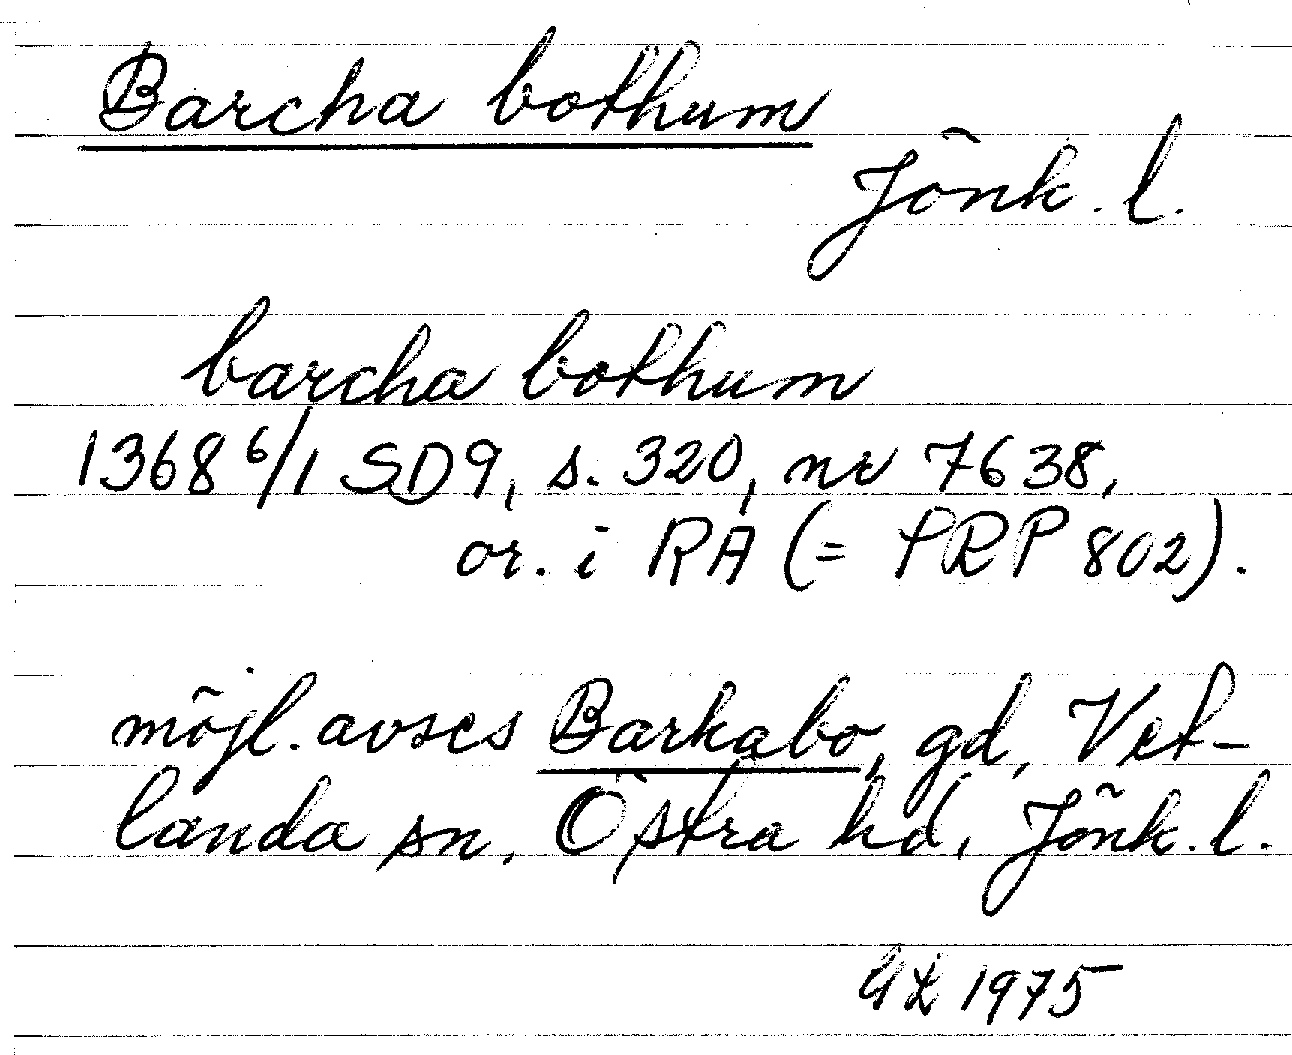 Barcha bothum
Jönk. l.
barcha bothum
1368 6/1 SD9, s. 320, nr 7638,
or. i RA (= PRP 802).
möjl. avses Barkabo, gd, Vet-
landa sn, Östra hd, Jönk. l.
1975